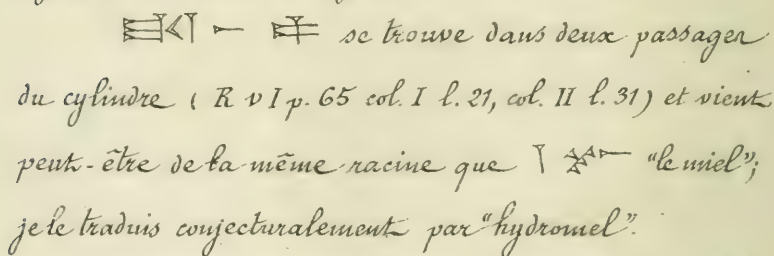 𒁕 𒀸 𒉺 se trouve dans deux passages
du cylindre ( R v I p. 65 col. I l. 21, col. II l. 31) et vient
peut-être de la même racine que 𒁹 “le miel”;
je le traduis conjecturalement par “hydromel”.